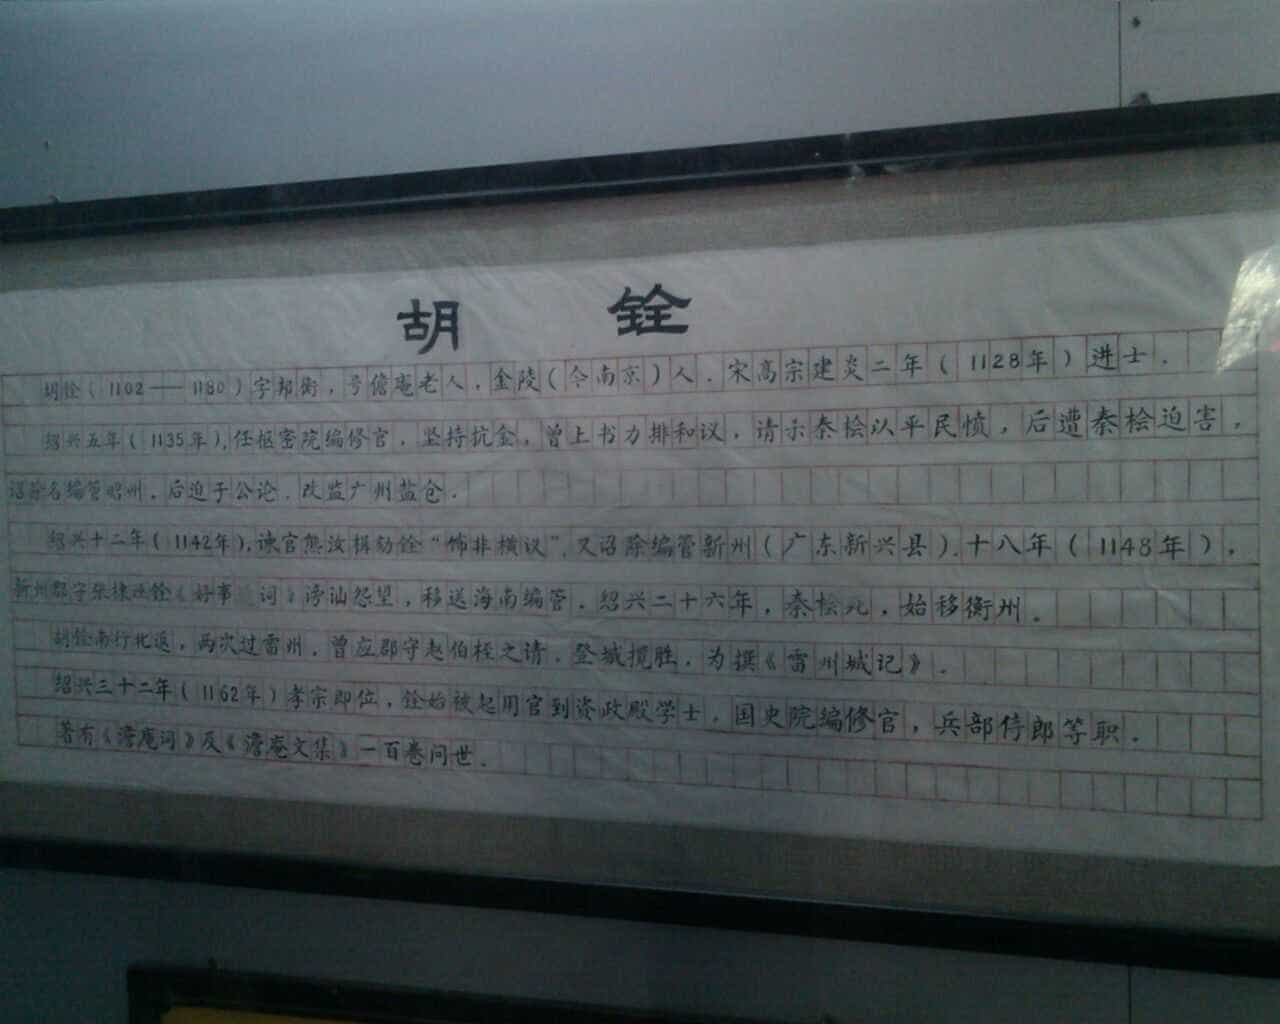 胡 铨
胡铨(1102——1180)字邦衡,号儋庵老人,金陵(今南京)人.宋高宗建炎二年(1128年)进士.
绍兴五年(1135年),任枢密院编修官,坚持抗金,曾上书力排和议,请示秦桧以平民愤,后遭秦桧迫害,
诏除名编管昭州.后迫于公论.改监广州盐仓.
绍兴十二年(1142年),谏官熊汝楫劾铨“饰非横议”.又诏除编管新州(广东新兴县).十八年(1148年),
新州郡守张棣讼铨《好事 词》谤讪怨望,移送海南编管.绍兴二十六年,秦桧死,始移衡州.
胡铨南行北返,两次过雷州.曾应郡守赵伯柽之请.登城揽胜,为撰《雷州城记》.
绍兴三十二年(1162年)孝宗即位,铨始被起用官到资政殿学士,国史院编修官,兵部侍郎等职.
著有《澹庵词》及《澹庵文集》一百卷问世.